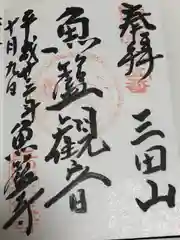 奉拝
三田山
魚籃観音
平成廿二年
十月九日
魚籃寺